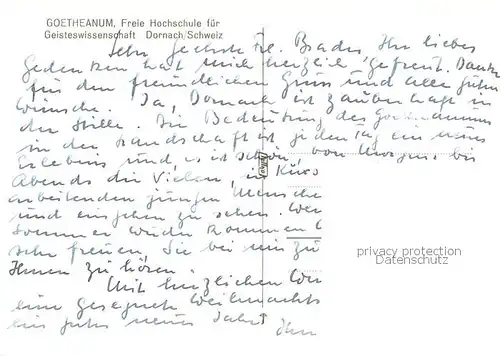 GOETHEANUM, Freie Hochschule für
Geisteswissenschaft Dornach/Schweiz
Sehr geehrte Frl. Brader, Ihr liebes
Gedenken hat mich herzlich gefreut. Danke
für den freundlichen Gruss und alle guten
Wünsche. Ja, Dornach ist zauberhaft in
der Stille. Die Bedeutung des Goetheanums
in der Landschaft ist jeden Tag ein neues
Erlebnis und es ist schön, von Morgens bis
Abends die vielen, in Kurs
arbeitenden jungen Mensche
und eingehen zu sehen. Wen
Sommer wieder kommen
sehr freuen, Sie bei mir zu
Ihnen zu hören.
Mit herzlichen Wün
eine gesegnete Weihnachts
ein gutes neues Jahr! Ihre
privacy protection
Datenschutz